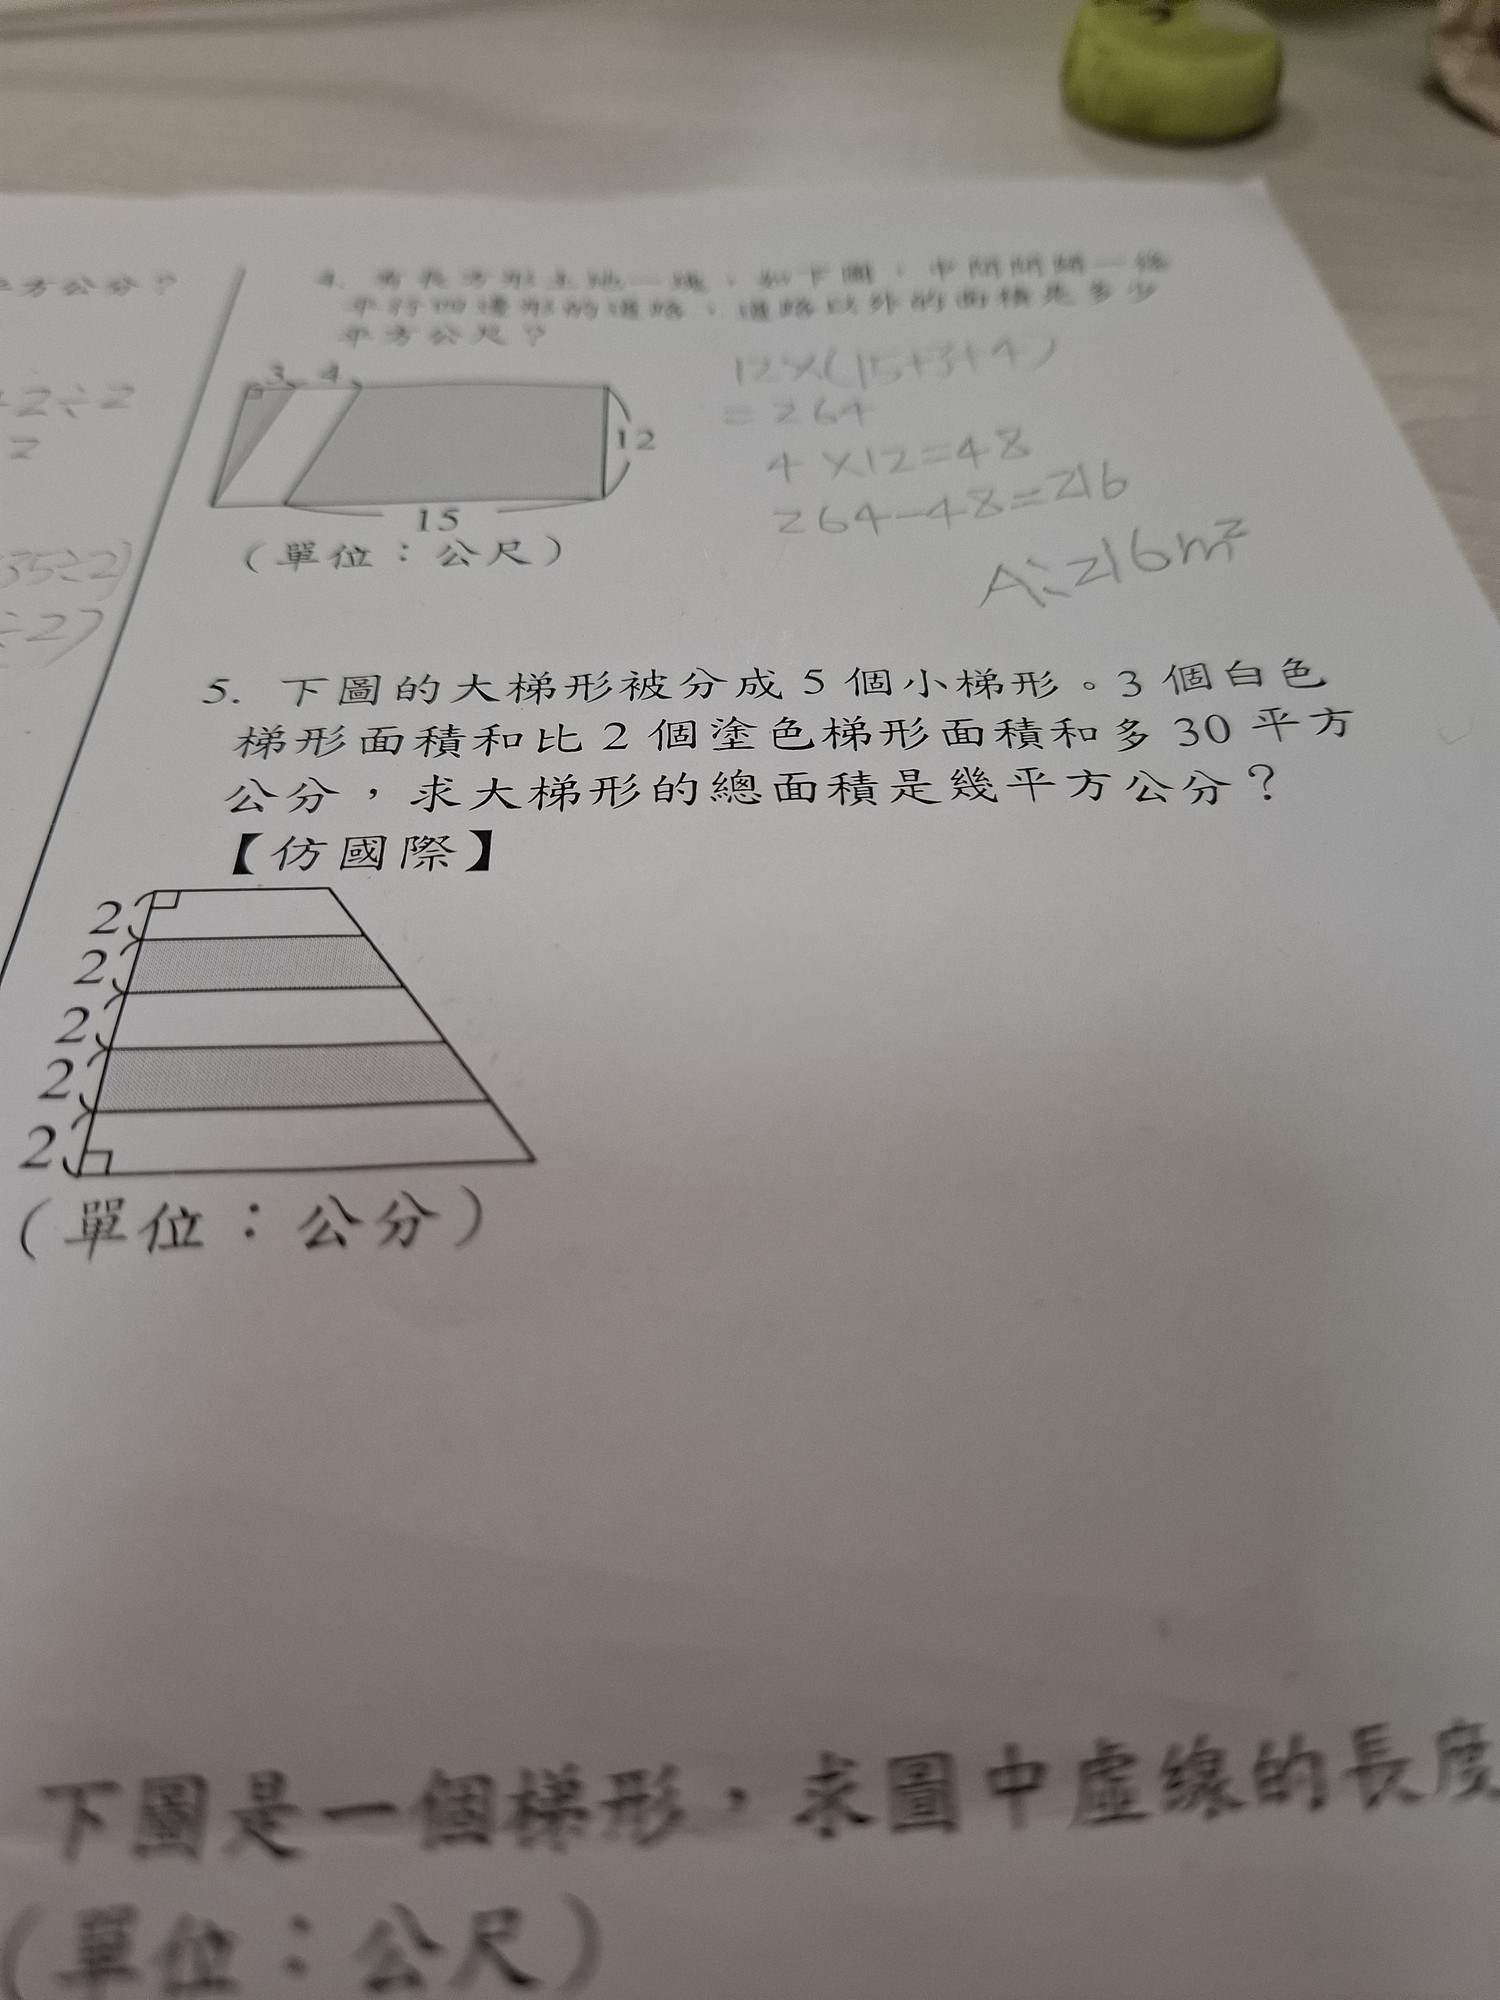 平方公分？
+2÷2
2
35÷2)
÷2)
4. 有長方形土地一塊，如下圖，中間開闢一條
平行四邊形的道路，道路以外的面積是多少
平方公尺？
3 4
12
15
（單位：公尺）
12×(15+3+4)
=264
4×12=48
264-48=216
A:216m²
5. 下圖的大梯形被分成 5 個小梯形。3 個白色
梯形面積和比 2 個塗色梯形面積和多 30 平方
公分，求大梯形的總面積是幾平方公分？
【仿國際】
2
2
2
2
2
（單位：公分）
下圖是一個梯形，求圖中虛線的長度
（單位：公尺）